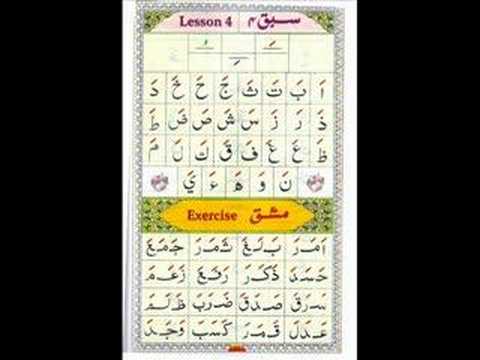 Lesson 4 سبق ۴
اَ بَ تَ ثَ جَ حَ خَ دَ
ذَ رَ زَ سَ شَ صَ ضَ طَ
ظَ عَ غَ فَ قَ كَ لَ مَ
نَ وَ هَ ءَ يَ
Exercise مشق
اَمَرَ بَلَغَ ثَمَرَ جَمَعَ
حَسَدَ ذَكَرَ رَفَعَ زَعَمَ
سَرَقَ صَدَقَ ضَرَبَ ظَلَمَ
عَدَلَ قَمَرَ كَسَبَ وَجَدَ